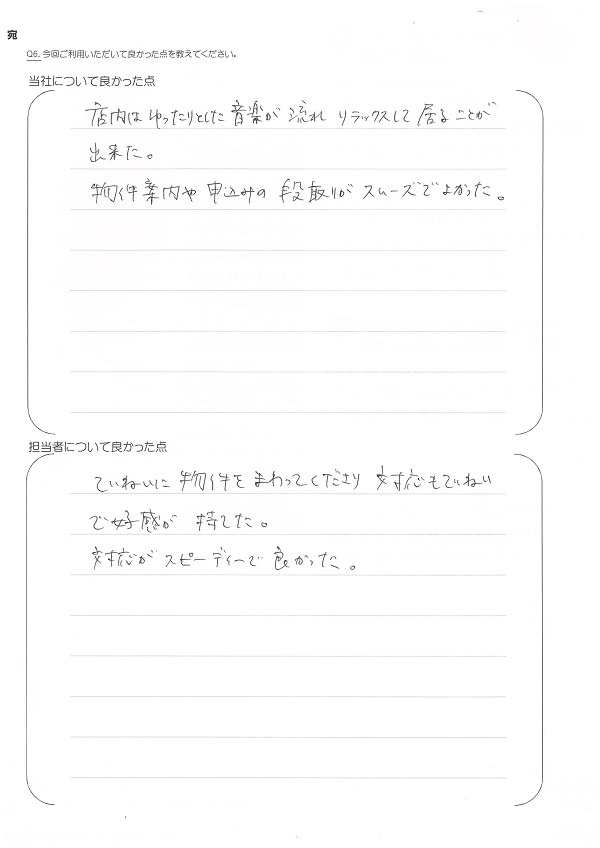 宛
Q6. 今回ご利用いただいて良かった点を教えてください。
当社について良かった点
店内はゆったりとした音楽が流れ リラックスして居ることが
出来た。
物件案内や申込みの段取りがスムーズでよかった。
担当者について良かった点
ていねいに物件をまわってくださり 対応もていねい
で好感が持てた。
対応がスピーディーで良かった。